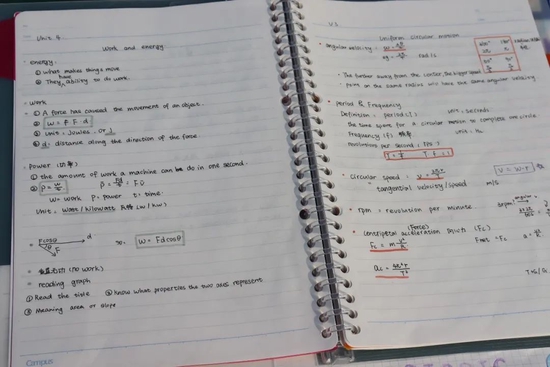 Unit 4
Work and energy
energy:
① What makes things move
② They have ability to do work.
Work
① A force has caused the movement of an object.
② W = F · d
③ Unit: Joules or J.
④ d: distance along the direction of the force.
Power
① the amount of work a machine can be do in one second.
② P = W/t P = Fd/t = FV
W = work P = power t = time.
Unit: Watt/kilowatt (W/kW)
Fcosθ d
θ F
W = Fdcosθ
(no work)
reading graph
① Read the title ② know what properties the two axes represent
③ Meaning area or slope
Campus
Uniform circular motion
angular velocity: rad/s
The further away from the center, the bigger speed
point on the same radius will have the same angular velocity.
period & Frequency
Definition: period() unit: seconds
the time spent for a circular motion to complete one circle
Frequency (f) unit: Hz.
revolutions per second (rps)
T = 1/f T · f = 1
Circular speed: V = 2πr/T V = w·r
tangential velocity/speed m/s
rpm = revolution per minute
(Force)
Centripetal acceleration (Fc)
Fc = m v²/R Fnet = Fc
ac = 4π²r/T²